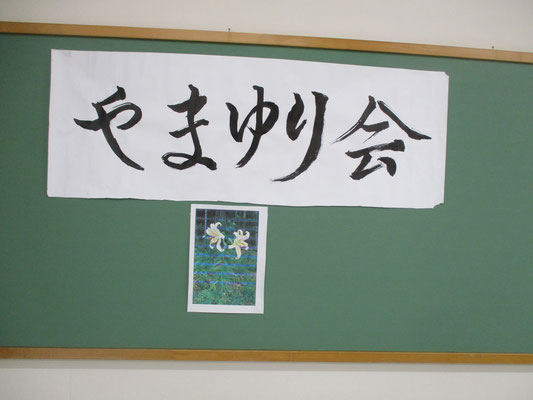 やまゆり会